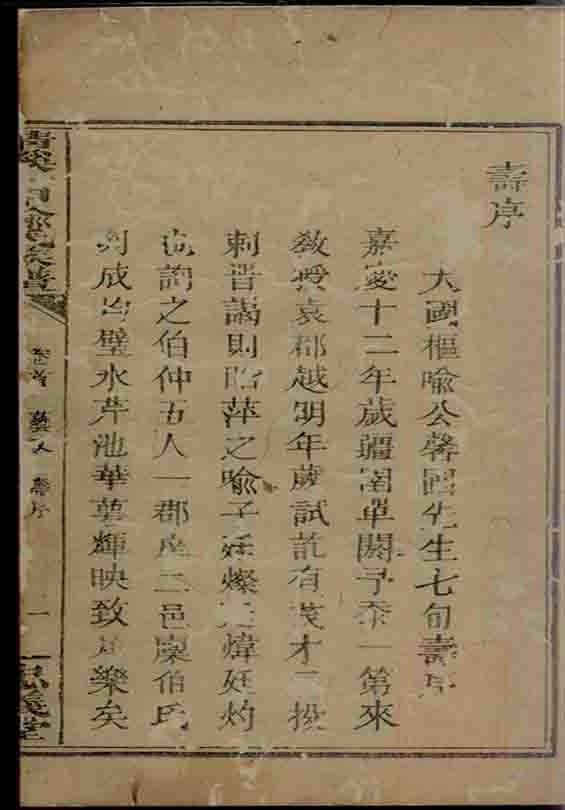 壽序
大國樞喻公馨國先生七旬壽序
嘉慶十二年歲疆圉單閼予忝一第來
教授袁郡越明年歲試訖有茂才二投
刺晋謁則昭萍之喻子廷燦廷煒廷灼
也詢之伯仲五人一郡庠二邑廩伯氏
列成均璧水芹池華萼輝映致足樂矣
卷首 藝文 壽序 一